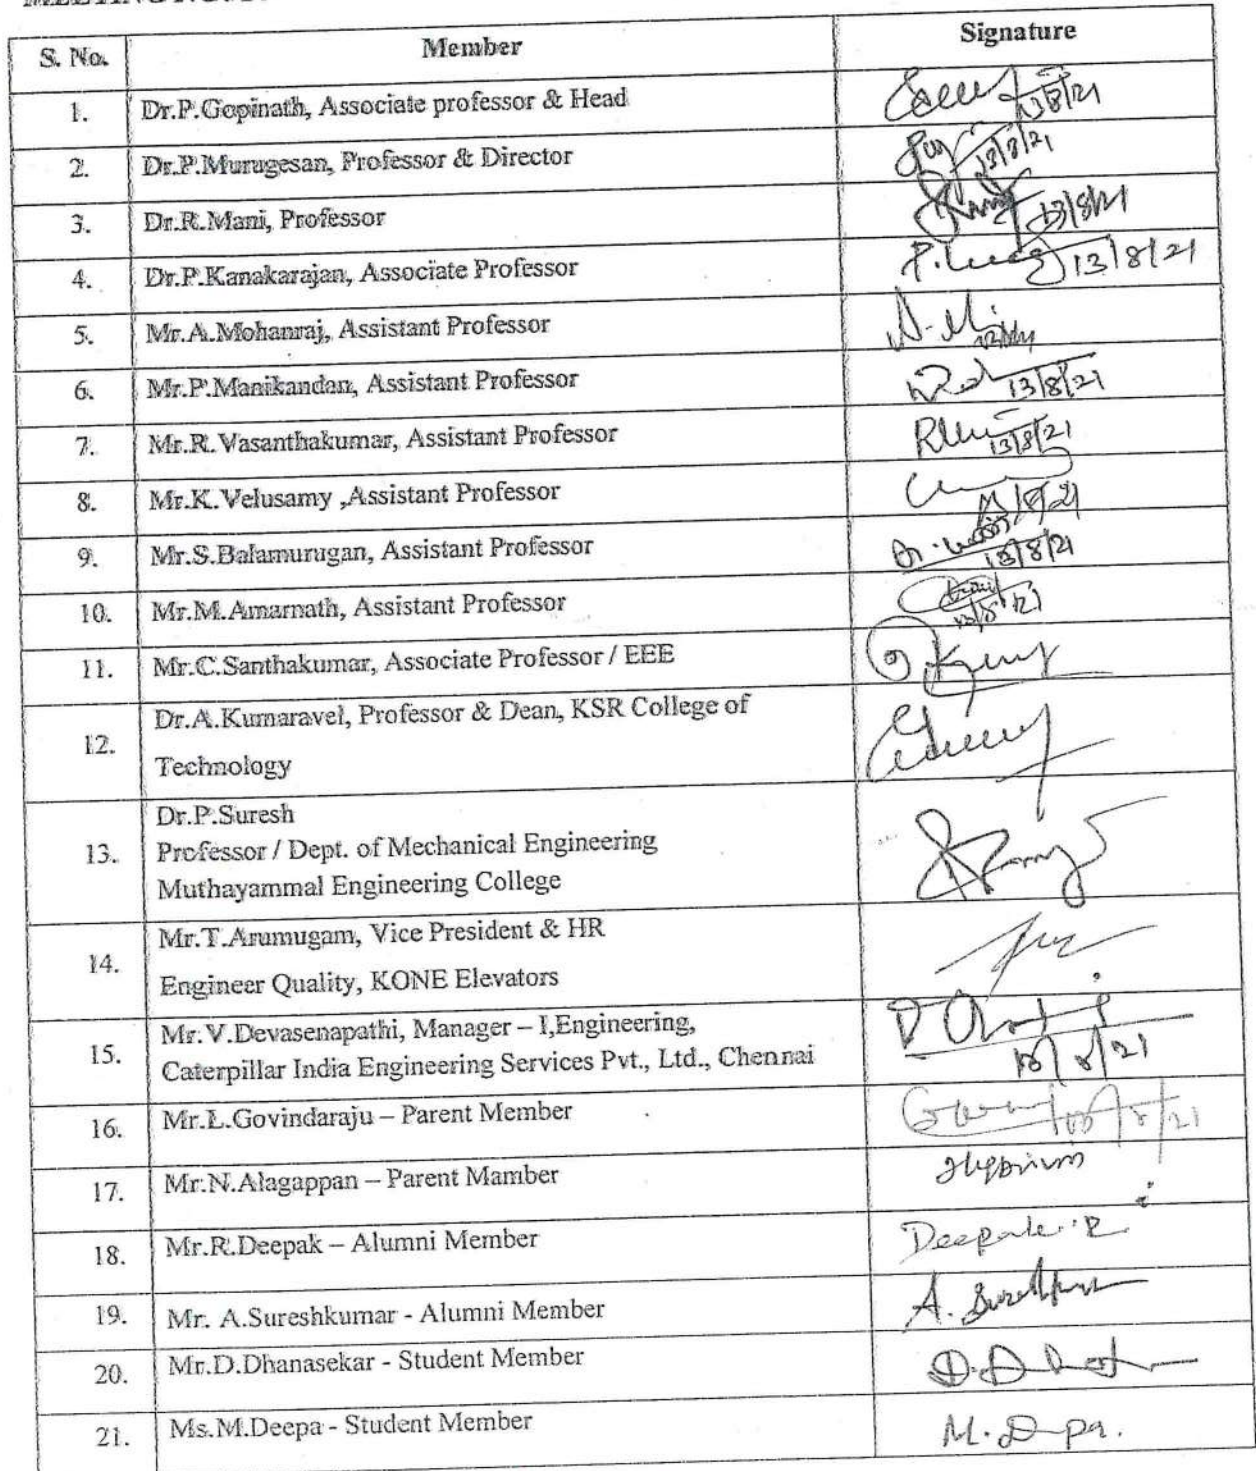 S. No. Member Signature
1. Dr.P.Gopinath, Associate professor & Head 13/8/21
2. Dr.P.Murugesan, Professor & Director 13/8/21
3. Dr.R.Mani, Professor 13/8/21
4. Dr.P.Kanakarajan, Associate Professor 13/8/21
5. Mr.A.Mohanraj, Assistant Professor
6. Mr.P.Manikandan, Assistant Professor 13/8/21
7. Mr.R.Vasanthakumar, Assistant Professor 13/8/21
8. Mr.K.Velusamy ,Assistant Professor
9. Mr.S.Balamurugan, Assistant Professor 13/8/21
10. Mr.M.Amarnath, Assistant Professor
11. Mr.C.Santhakumar, Associate Professor / EEE
12. Dr.A.Kumaravel, Professor & Dean, KSR College of
Technology
13. Dr.P.Suresh
Professor / Dept. of Mechanical Engineering
Muthayammal Engineering College
14. Mr.T.Arumugam, Vice President & HR
Engineer Quality, KONE Elevators
15. Mr.V.Devasenapathi, Manager – I,Engineering,
Caterpillar India Engineering Services Pvt., Ltd., Chennai
16. Mr.L.Govindaraju – Parent Member
17. Mr.N.Alagappan – Parent Mamber
18. Mr.R.Deepak – Alumni Member Deepak.R
19. Mr. A.Sureshkumar - Alumni Member
20. Mr.D.Dhanasekar - Student Member
21. Ms.M.Deepa - Student Member M.Deepa.